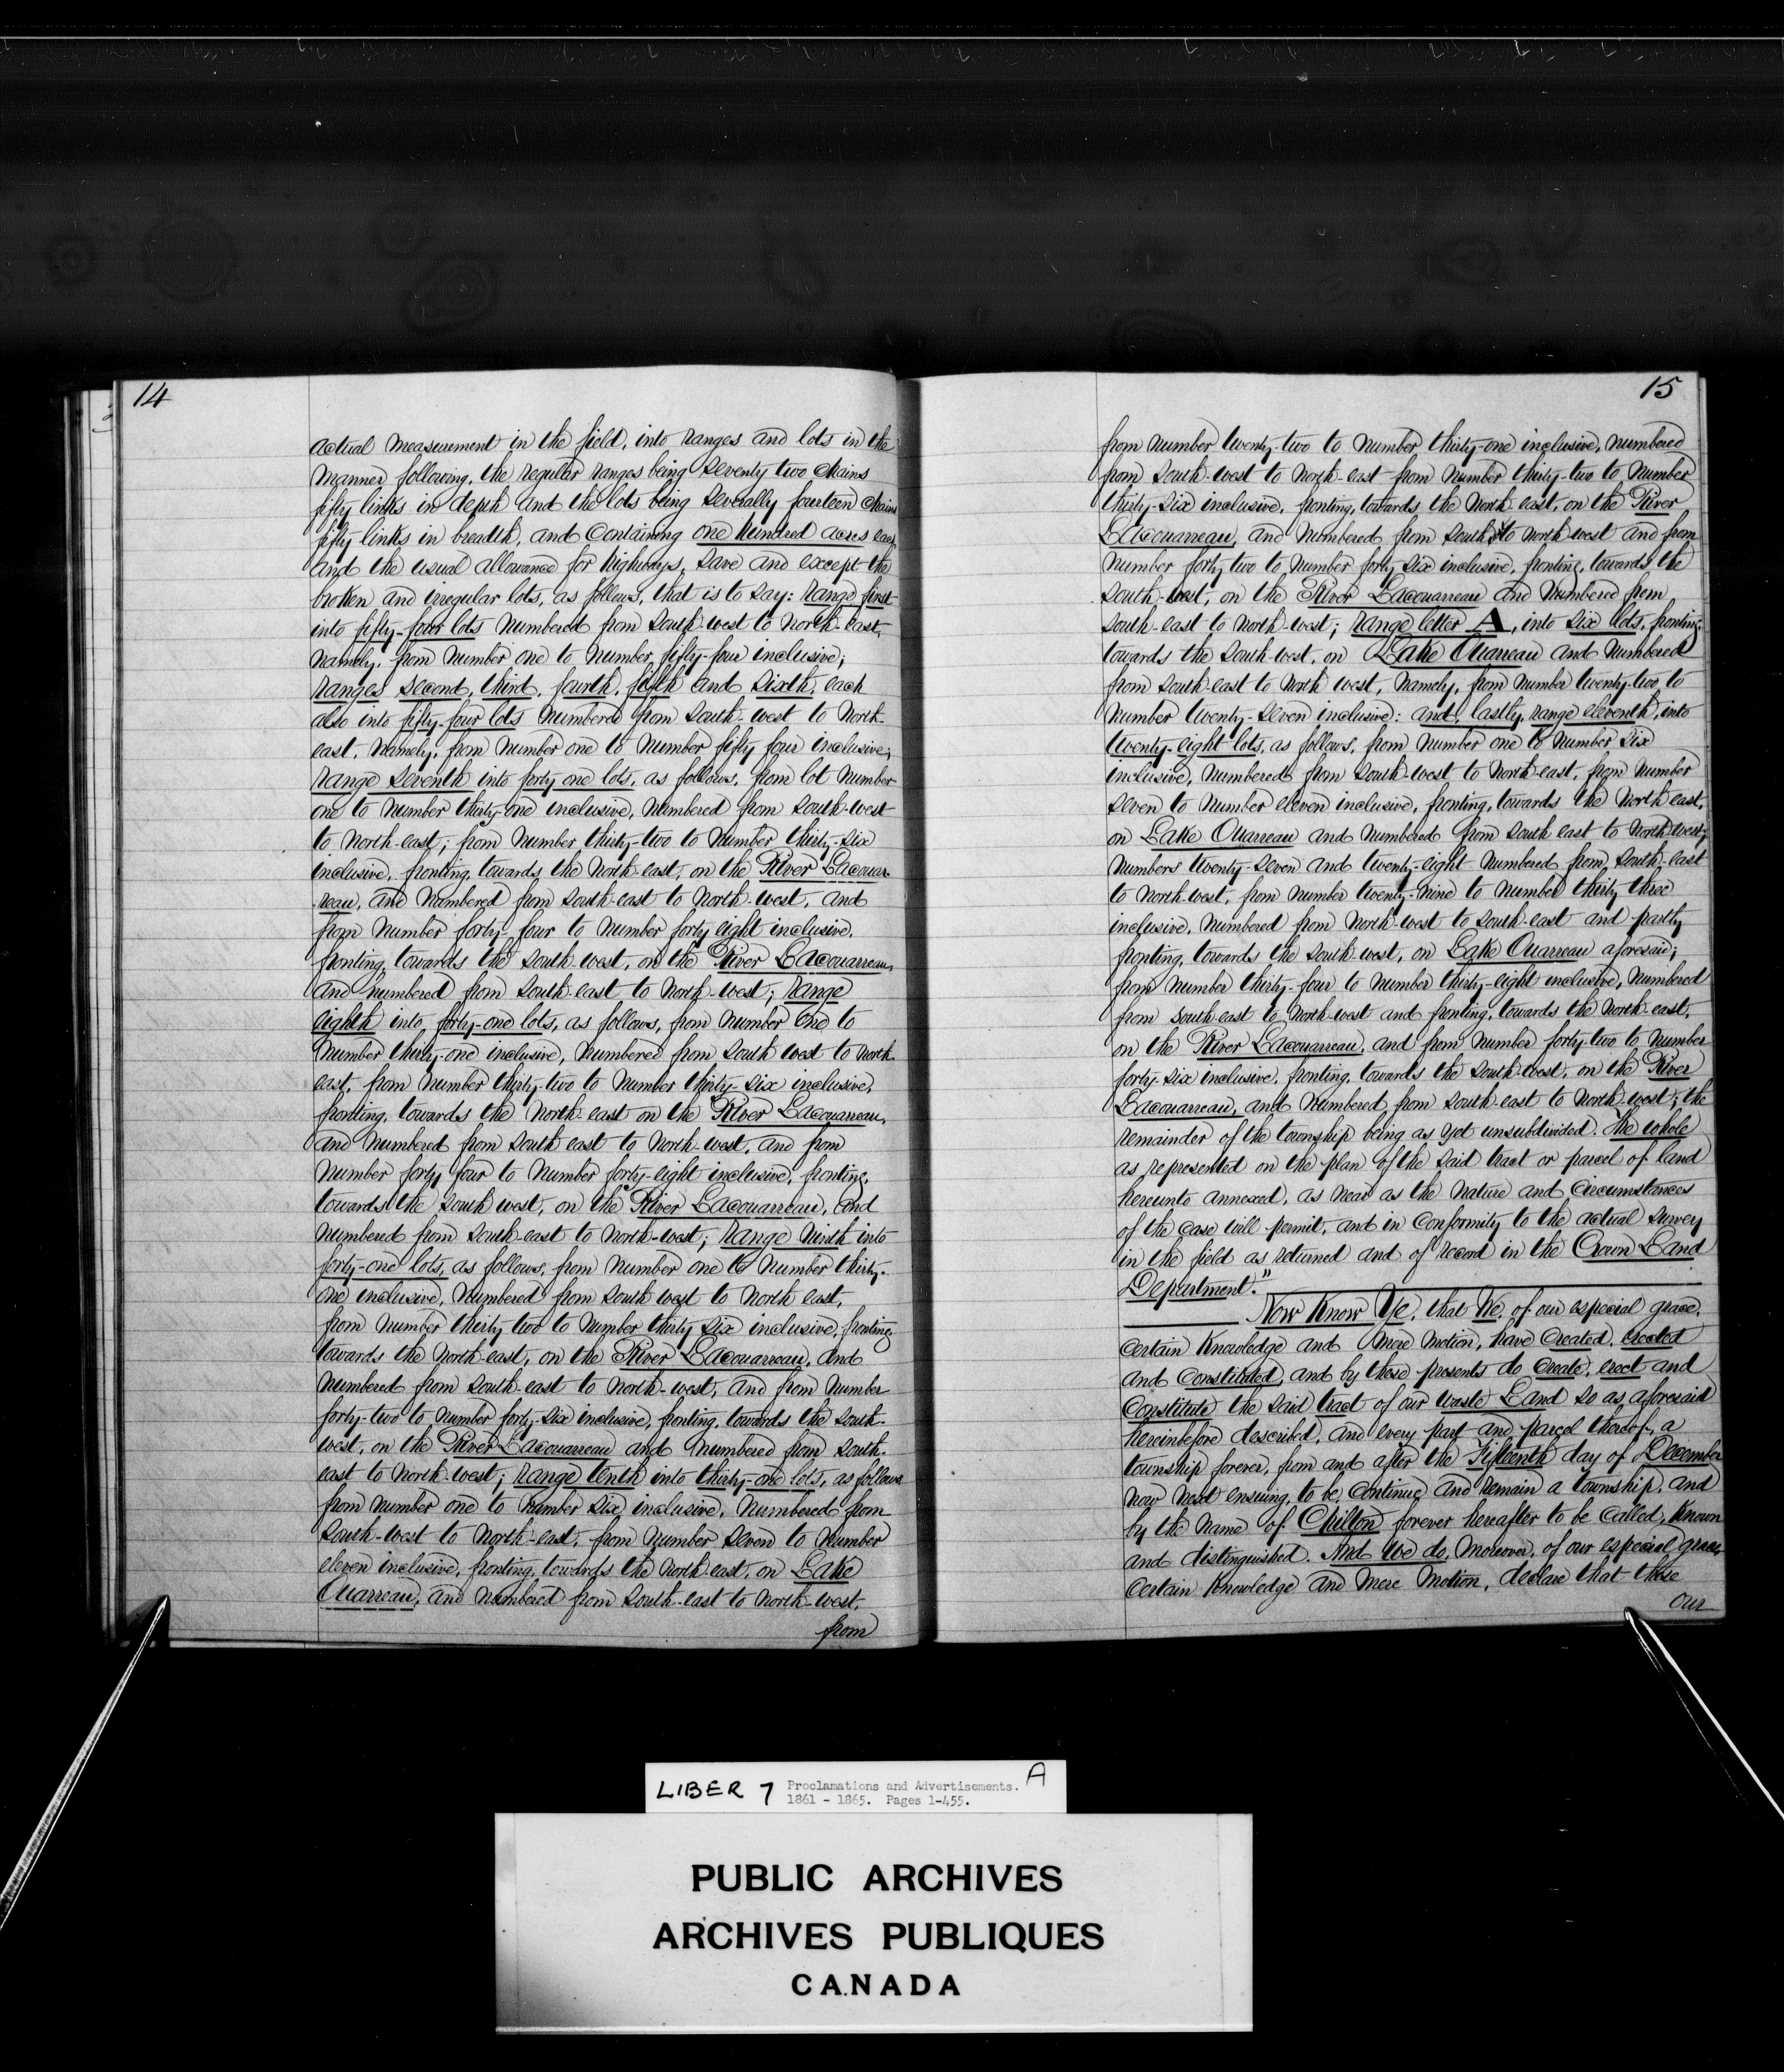 14
actual measurement in the field, into ranges and lots in the
manner following, the regular ranges being seventy two chains
fifty links in depth and the lots being severally fourteen chains
fifty links in breadth, and containing one hundred acres each
and the usual allowance for highways, save and except the
broken and irregular lots, as follows, that is to say: range first
into fifty-four lots numbered from south-west to north-east,
namely, from number one to number fifty-four inclusive;
ranges second, third, fourth, fifth and sixth, each
also into fifty-four lots numbered from south-west to north-
east, namely, from number one to number fifty four inclusive;
range seventh into forty one lots, as follows, from lot number
one to number thirty-one inclusive, numbered from south-west
to north-east; from number thirty-two to number thirty-six
inclusive, fronting, towards the north-east, on the River Lacouar-
reau, and numbered from south-east to north-west, and
from number forty-four to number forty eight inclusive,
fronting, towards the south-west, on the River Lacouarreau,
and numbered from south-east to north-west; range
eighth into forty-one lots, as follows, from number one to
number thirty-one inclusive, numbered from south west to north-
east, from number thirty-two to number thirty-six inclusive,
fronting, towards the north-east on the River Lacouarreau,
and numbered from south east to north-west, and from
number forty four to number forty-eight inclusive, fronting,
towards the south west, on the River Lacouarreau, and
numbered from south-east to north-west; range ninth into
forty-one lots, as follows, from number one to number thirty-
one inclusive, numbered from south west to north east,
from number thirty two to number thirty six inclusive, fronting,
towards the north-east, on the River Lacouarreau, and
numbered from south-east to north-west, and from number
forty-two to number forty-six inclusive, fronting, towards the south-
west, on the River Lacouarreau and numbered from south-
east to north-west; range tenth into thirty-one lots, as follows
from number one to number six inclusive, numbered from
south-west to north-east, from number seven to number
eleven inclusive, fronting, towards the north-east, on Lake
Ouarreau, and numbered from south-east to north-west,
from
15
from number twenty-two to number thirty-one inclusive, numbered
from south-west to north-east from number thirty-two to number
thirty-six inclusive, fronting, towards the north-east, on the River
Lacouarreau, and numbered from south to north west and from
number forty two to number forty six inclusive, fronting, towards the
south-west, on the River Lacouarreau and numbered from
south-east to north-west; range letter A, into six lots, fronting,
towards the south-west, on Lake Ouarreau and numbered
from south-east to north west, namely, from number twenty-two to
number twenty-seven inclusive: and, lastly, range eleventh, into
twenty-eight lots, as follows, from number one to number six
inclusive, numbered from south-west to north-east, from number
seven to number eleven inclusive, fronting, towards the north east,
on Lake Ouarreau and numbered from south east to north west;
numbers twenty-seven and twenty-eight numbered from south-east
to north-west, from number twenty-nine to number thirty three
inclusive, numbered from north-west to south-east and partly
fronting, towards the south-west, on Lake Ouarreau aforesaid;
from number thirty-four to number thirty-eight inclusive, numbered
from south east to north-west and fronting, towards the north-east,
on the River Lacouarreau, and from number forty-two to number
forty-six inclusive, fronting, towards the south-west, on the River
Lacouarreau, and numbered from south-east to north west; the
remainder of the township being as yet unsubdivided. The whole
as represented on the plan of the said tract or parcel of land
hereunto annexed, as near as the nature and circumstances
of the case will permit, and in conformity to the actual survey
in the field as returned and of record in the Crown Land
Department."
Now Know Ye, that We, of our especial grace,
certain knowledge and mere motion, have created, erected
and constituted, and by these presents do create, erect and
constitute the said tract of our waste Land so as aforesaid
hereinbefore described, and every part and parcel thereof, a
township forever, from and after the Fifteenth day of December
now next ensuing, to be, continue and remain a township, and
by the name of Chilton forever hereafter to be called, known
and distinguished. And We do, moreover, of our especial grace,
certain knowledge and mere motion, declare that these
our
LIBER 7 Proclamations and Advertisements. A
1861 - 1865. Pages 1-455.
PUBLIC ARCHIVES
ARCHIVES PUBLIQUES
CANADA